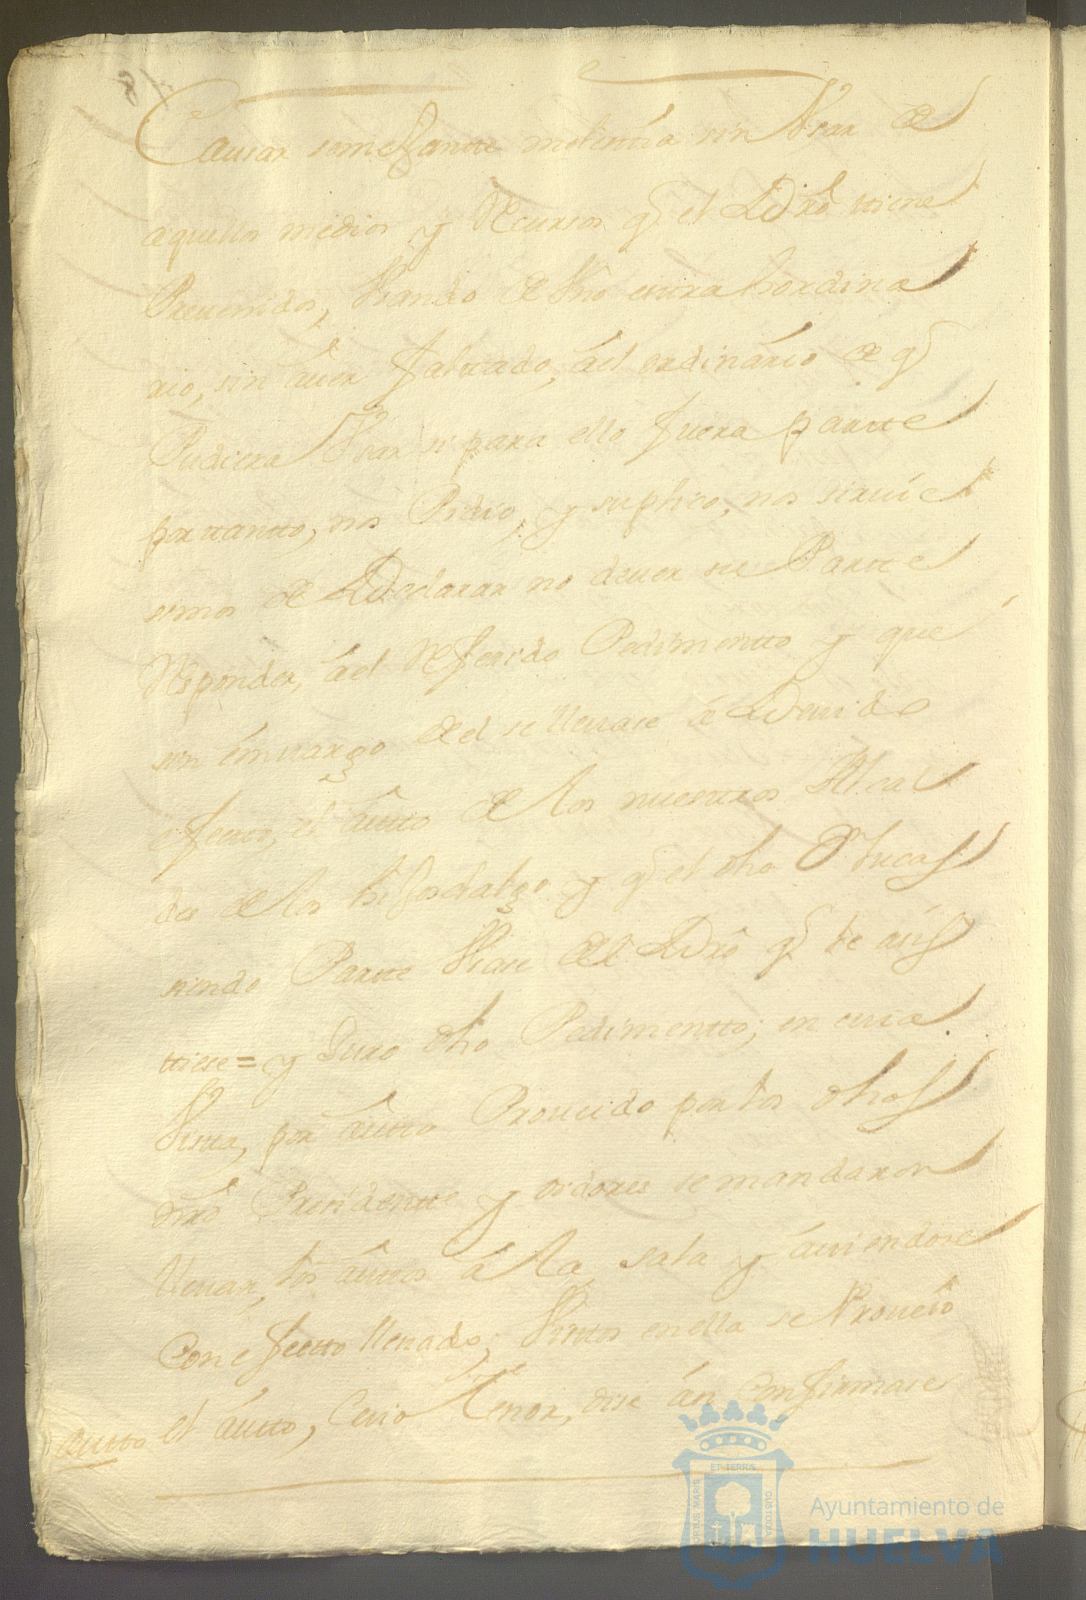 Causar semejante molestia sin Vsar de
aquellos medios y Recursos q el Dro ttiene
Preuenidos, Vsando de Vno extrahordina
rio, sin auer faltado, âel ordinario de q
Pudiera Vsar si para ello fuera partte
por tantto, nos Pidio, y suplico, nos siruie
semos de Declarar no deuer su Partte
Responder, âel Referido Pedimentto y que
sin embargo del se lleuase â Deuido
efecto, el âutto de los nuestros Alcal
des de los hijosdalgo y q el dho D. Lucas
siendo Partte Vsase del Dro q le asis
ttiese = y Juro dho Pedimentto; en cuia
Vista, por âutto Proueido por los dhos
nros Presidentte y oidores se mandaron
lleuar los âuttos â la sala y âuiendose
Con efectto lleuado, Vistos en ella se Proueio
el âutto, Cuio Tenor, dise asi Confirmase
Autto
Ayuntamiento de
HUELVA